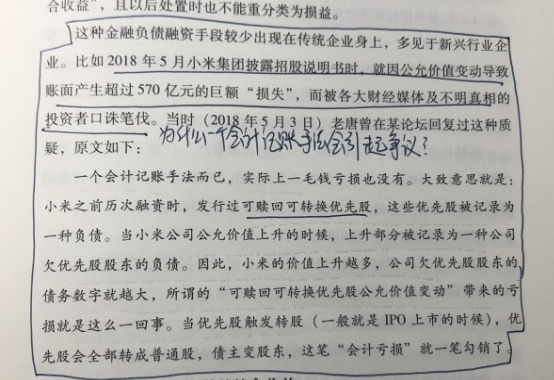 合收益”，且以后处置时也不能重分类为损益。
这种金融负债融资手段较少出现在传统企业身上，多见于新兴行业企
业。比如 2018 年 5 月小米集团披露招股说明书时，就因公允价值变动导致
账面产生超过 570 亿元的巨额“损失”，而被各大财经媒体及不明真相的
投资者口诛笔伐。当时（2018 年 5 月 3 日）老唐曾在某论坛回复过这种质
疑，原文如下：
为什么一个会计记账手法会引起争议？
一个会计记账手法而已，实际上一毛钱亏损也没有。大致意思就是：
小米之前历次融资时，发行过可赎回可转换优先股，这些优先股被记录为
一种负债。当小米公司公允价值上升的时候，上升部分被记录为一种公司
欠优先股股东的负债。因此，小米的价值上升越多，公司欠优先股股东的
债务数字就越大，所谓的“可赎回可转换优先股公允价值变动”带来的亏
损就是这么一回事。当优先股触发转股（一般就是 IPO 上市的时候），优
先股会全部转成普通股，债主变股东，这笔“会计亏损”就一笔勾销了。